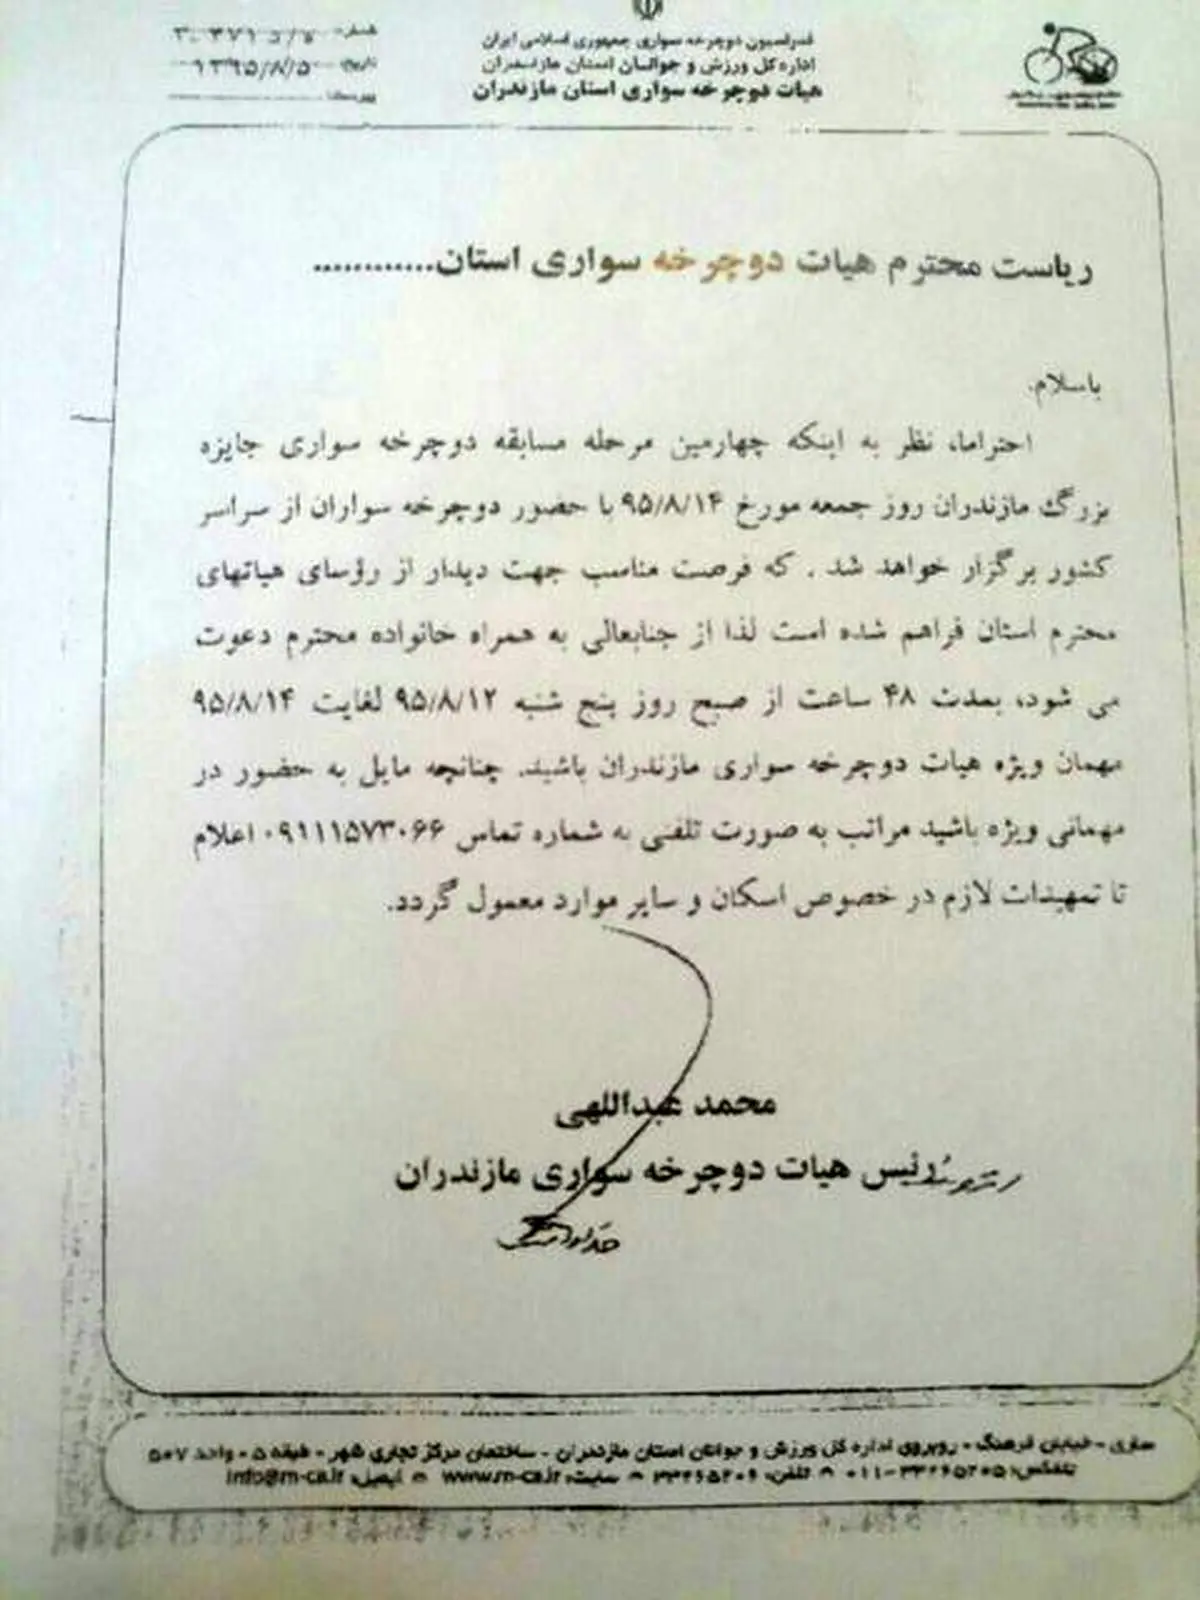 فدراسیون دوچرخه سواری جمهوری اسلامی ایران
اداره کل ورزش و جوانان استان مازندران
هیات دوچرخه سواری استان مازندران
شماره:
تاریخ: ۱۳۹۵/۸/۵
پیوست:
ریاست محترم هیات دوچرخه سواری استان............
باسلام.
احتراما، نظر به اینکه چهارمین مرحله مسابقه دوچرخه سواری جایزه
بزرگ مازندران روز جمعه مورخ ۹۵/۸/۱۴ با حضور دوچرخه سواران از سراسر
کشور برگزار خواهد شد . که فرصت مناسب جهت دیدار از رؤسای هیاتهای
محترم استان فراهم شده است لذا از جنابعالی به همراه خانواده محترم دعوت
می شود، بمدت ۴۸ ساعت از صبح روز پنج شنبه ۹۵/۸/۱۲ لغایت ۹۵/۸/۱۴
مهمان ویژه هیات دوچرخه سواری مازندران باشید. چنانچه مایل به حضور در
مهمانی ویژه باشید مراتب به صورت تلفنی به شماره تماس ۰۹۱۱۱۵۷۳۰۶۶ اعلام
تا تمهیدات لازم در خصوص اسکان و سایر موارد معمول گردد.
محمد عبداللهی
رئیس هیات دوچرخه سواری مازندران
ساری - خیابان فرهنگ - روبروی اداره کل ورزش و جوانان استان مازندران - ساختمان مرکز تجاری شهر - طبقه ۵ - واحد ۵۰۷
تلفکس: ۰۱۱-۳۳۲۶۵۲۰۵ تلفن: ۳۳۲۶۵۲۰۶ سایت: www.m-ca.ir ایمیل: info@m-ca.ir